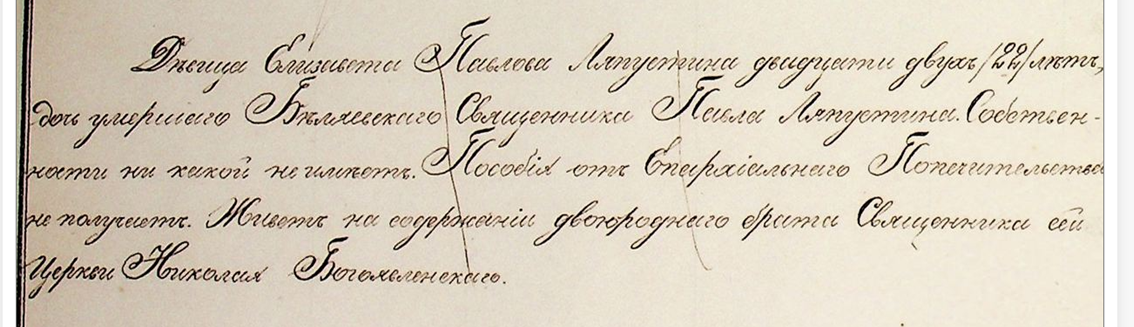 Дѣвица Елизавета Павлова Ляпустина двадцати двухъ /22/ лѣтъ,
дочь умершаго Бѣляевскаго Священника Павла Ляпустина. Собствен-
ности ни какой не имѣетъ. Пособія отъ Епархіальнаго Попечительства
не получаетъ. Живетъ на содержаніи двоюроднаго брата Священника сей
Церкви Николая Богоявленскаго.